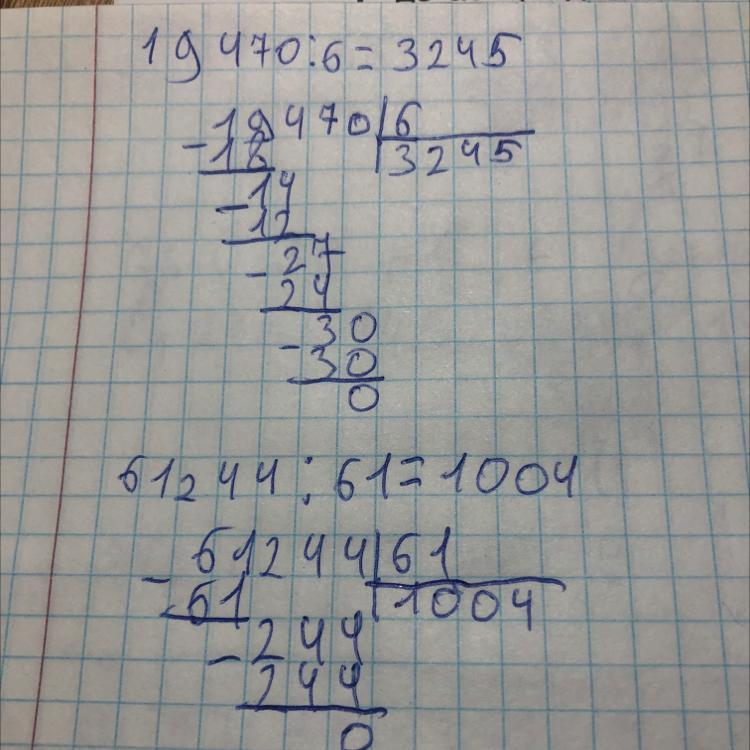 19470:6=3245
19470|6
-18 3245
-14
12
-27
24
-30
30
0
61244:61=1004
-61244|61
61 1004
-244
244
0